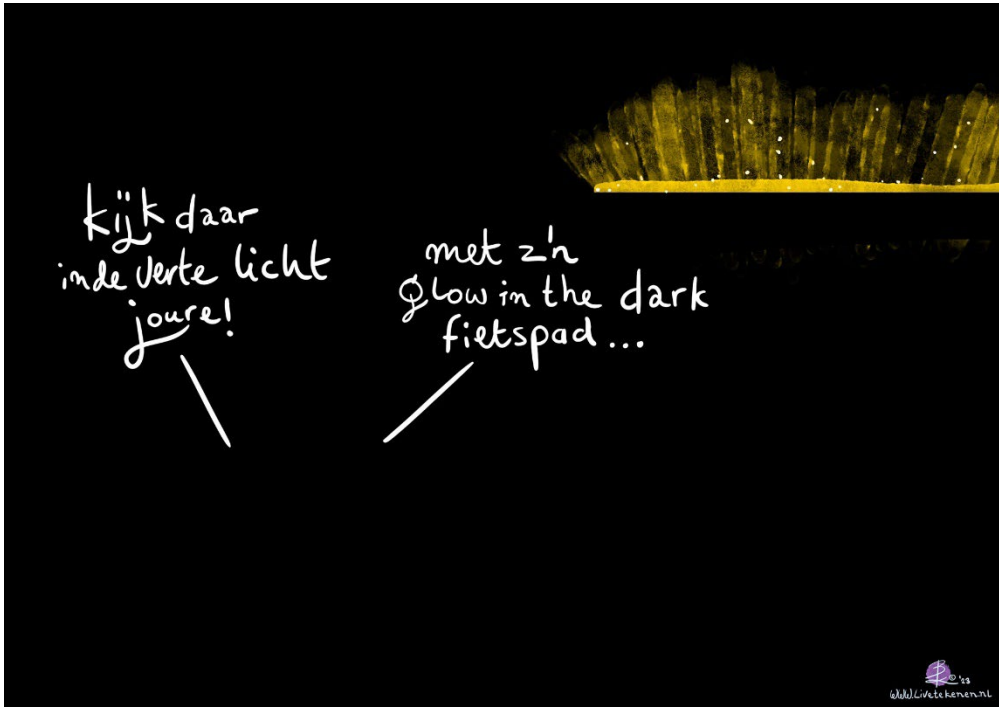 kijk daar
in de verte licht
joure!
met z'n
Glow in the dark
fietspad...
BK © '23
www.Livetekenen.nl